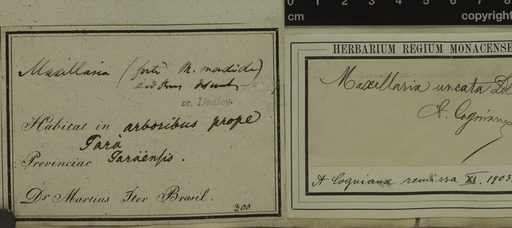 0 1 2 3 4 5 6 7 8
cm
copyright
Maxillaria (forte M. madida)
sc. Lindley.
Habitat in arboribus prope
Pará
Provinciae Paraënsis.
Dr Martius Iter Brasil.
300
HERBARIUM REGIUM MONACENSE
Maxillaria uncata
A. Cogniaux
A Cogniaux remissa XI. 1903.